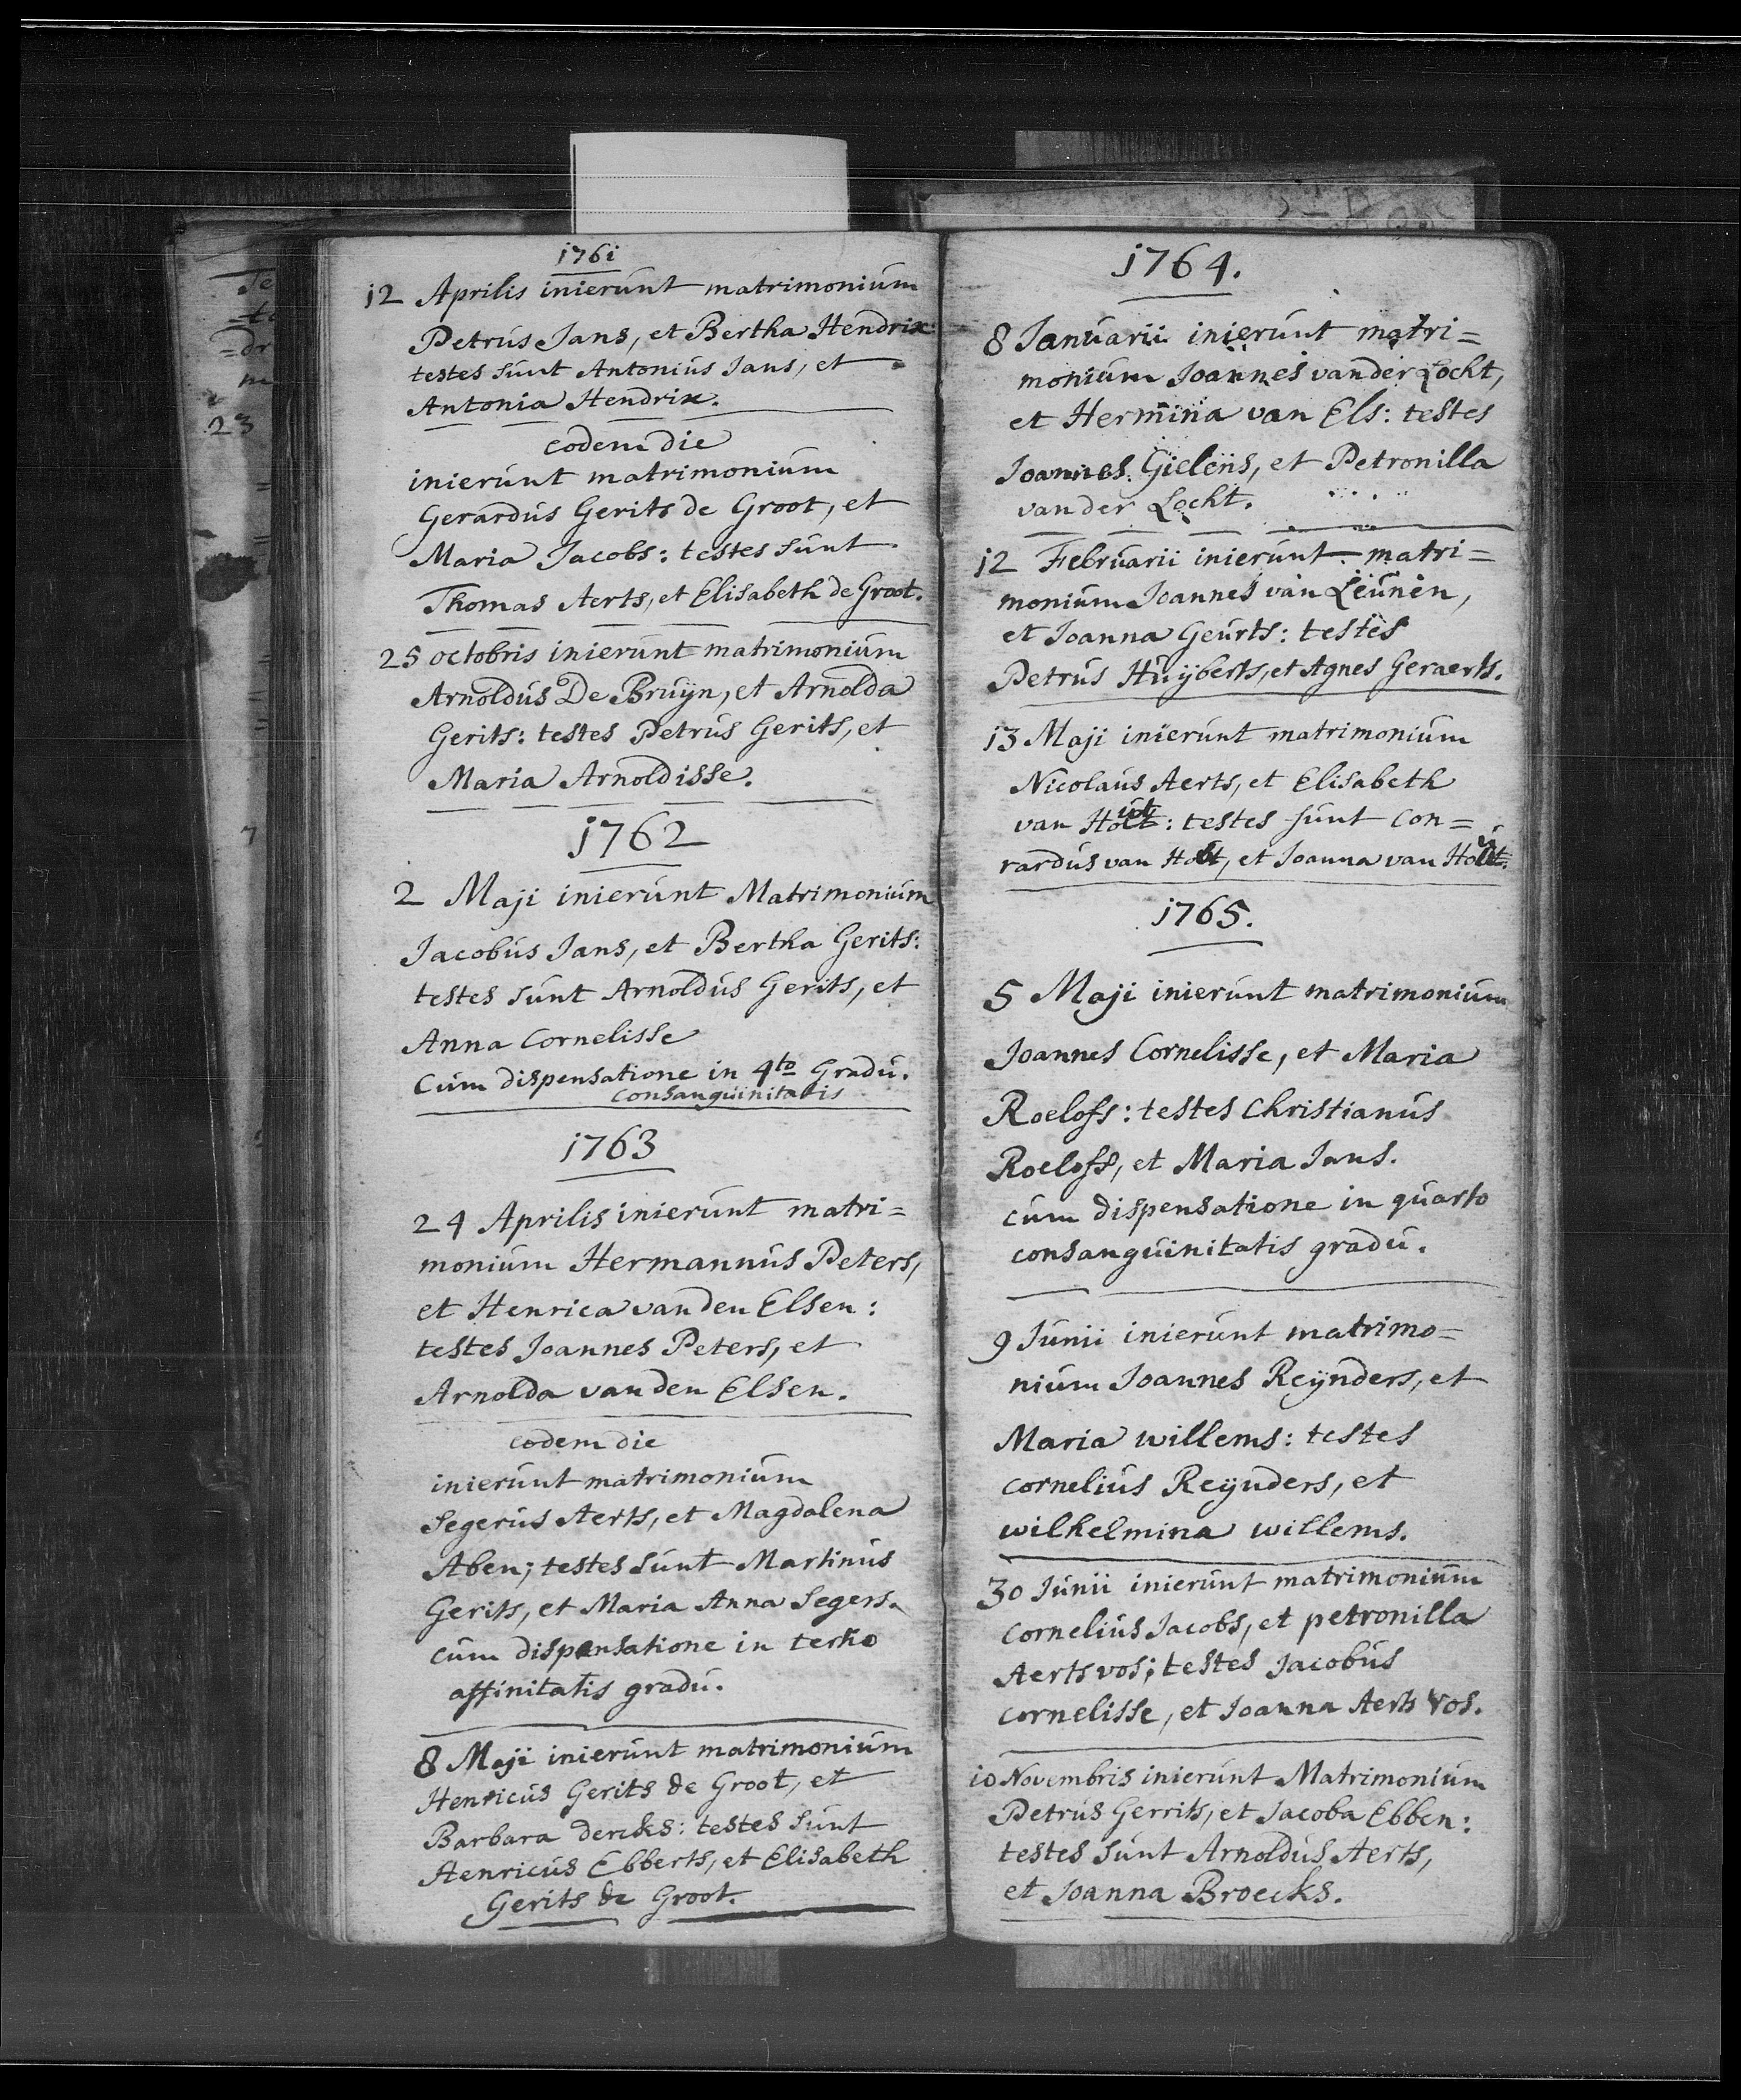 1761
12 Aprilis inierunt matrimonium
Petrus Jans, et Bertha Hendrix
testes sunt Antonius Jans, et
Antonia Hendrix.
eodem die
inierunt matrimonium
Gerardus Gerits de Groot, et
Maria Jacobs: testes sunt
Thomas Aerts, et Elisabeth de Groot.
25 octobris inierunt matrimonium
Arnoldus De Bruijn, et Arnolda
Gerits: testes Petrus Gerits, et
Maria Arnoldisse.
1762
2 Maji inierunt Matrimonium
Jacobus Jans, et Bertha Gerits:
testes sunt Arnoldus Gerits, et
Anna Cornelisse
Cum dispensatione in 4to Gradu.
consanguinitatis
1763
24 Aprilis inierunt matri=
monium Hermannus Peters,
et Henrica vanden Elsen:
testes Joannes Peters, et
Arnolda vanden Elsen.
eodem die
inierunt matrimonium
Segerus Aerts, et Magdalena
Aben; testes sunt Martinus
Gerits, et Maria Anna Segers.
cum dispensatione in tertio
affinitatis gradu.
8 Maji inierunt matrimonium
Henricus Gerits de Groot, et
Barbara dercks: testes sunt
Henricus Ebberts, et Elisabeth
Gerits de Groot.
1764.
8 Januarii inierunt matri=
monium Joannes vander Locht,
et Hermina van Els: testes
Joannes Gielens, et Petronilla
vander Locht.
12 Februarii inierunt matri=
monium Joannes van Leunen,
et Joanna Geurts: testes
Petrus Huijberts, et Agnes Geraerts.
13 Maji inierunt matrimonium
Nicolaus Aerts, et Elisabeth
van Hout: testes sunt Con=
rardus van Hout, et Joanna van Hout.
1765.
5 Maji inierunt matrimonium
Joannes Cornelisse, et Maria
Roelofs: testes Christianus
Roelofs, et Maria Jans.
cum dispensatione in quarto
consanguinitatis gradu.
9 Junii inierunt matrimo=
nium Joannes Reijnders, et
Maria willems: testes
cornelius Reijnders, et
wilhelmina willems.
30 Junii inierunt matrimonium
cornelius Jacobs, et petronilla
Aerts vos; testes Jacobus
cornelisse, et Joanna Aerts vos.
10 Novembris inierunt Matrimonium
Petrus Gerrits, et Jacoba Ebben:
testes sunt Arnoldus Aerts,
et Joanna Broecks.